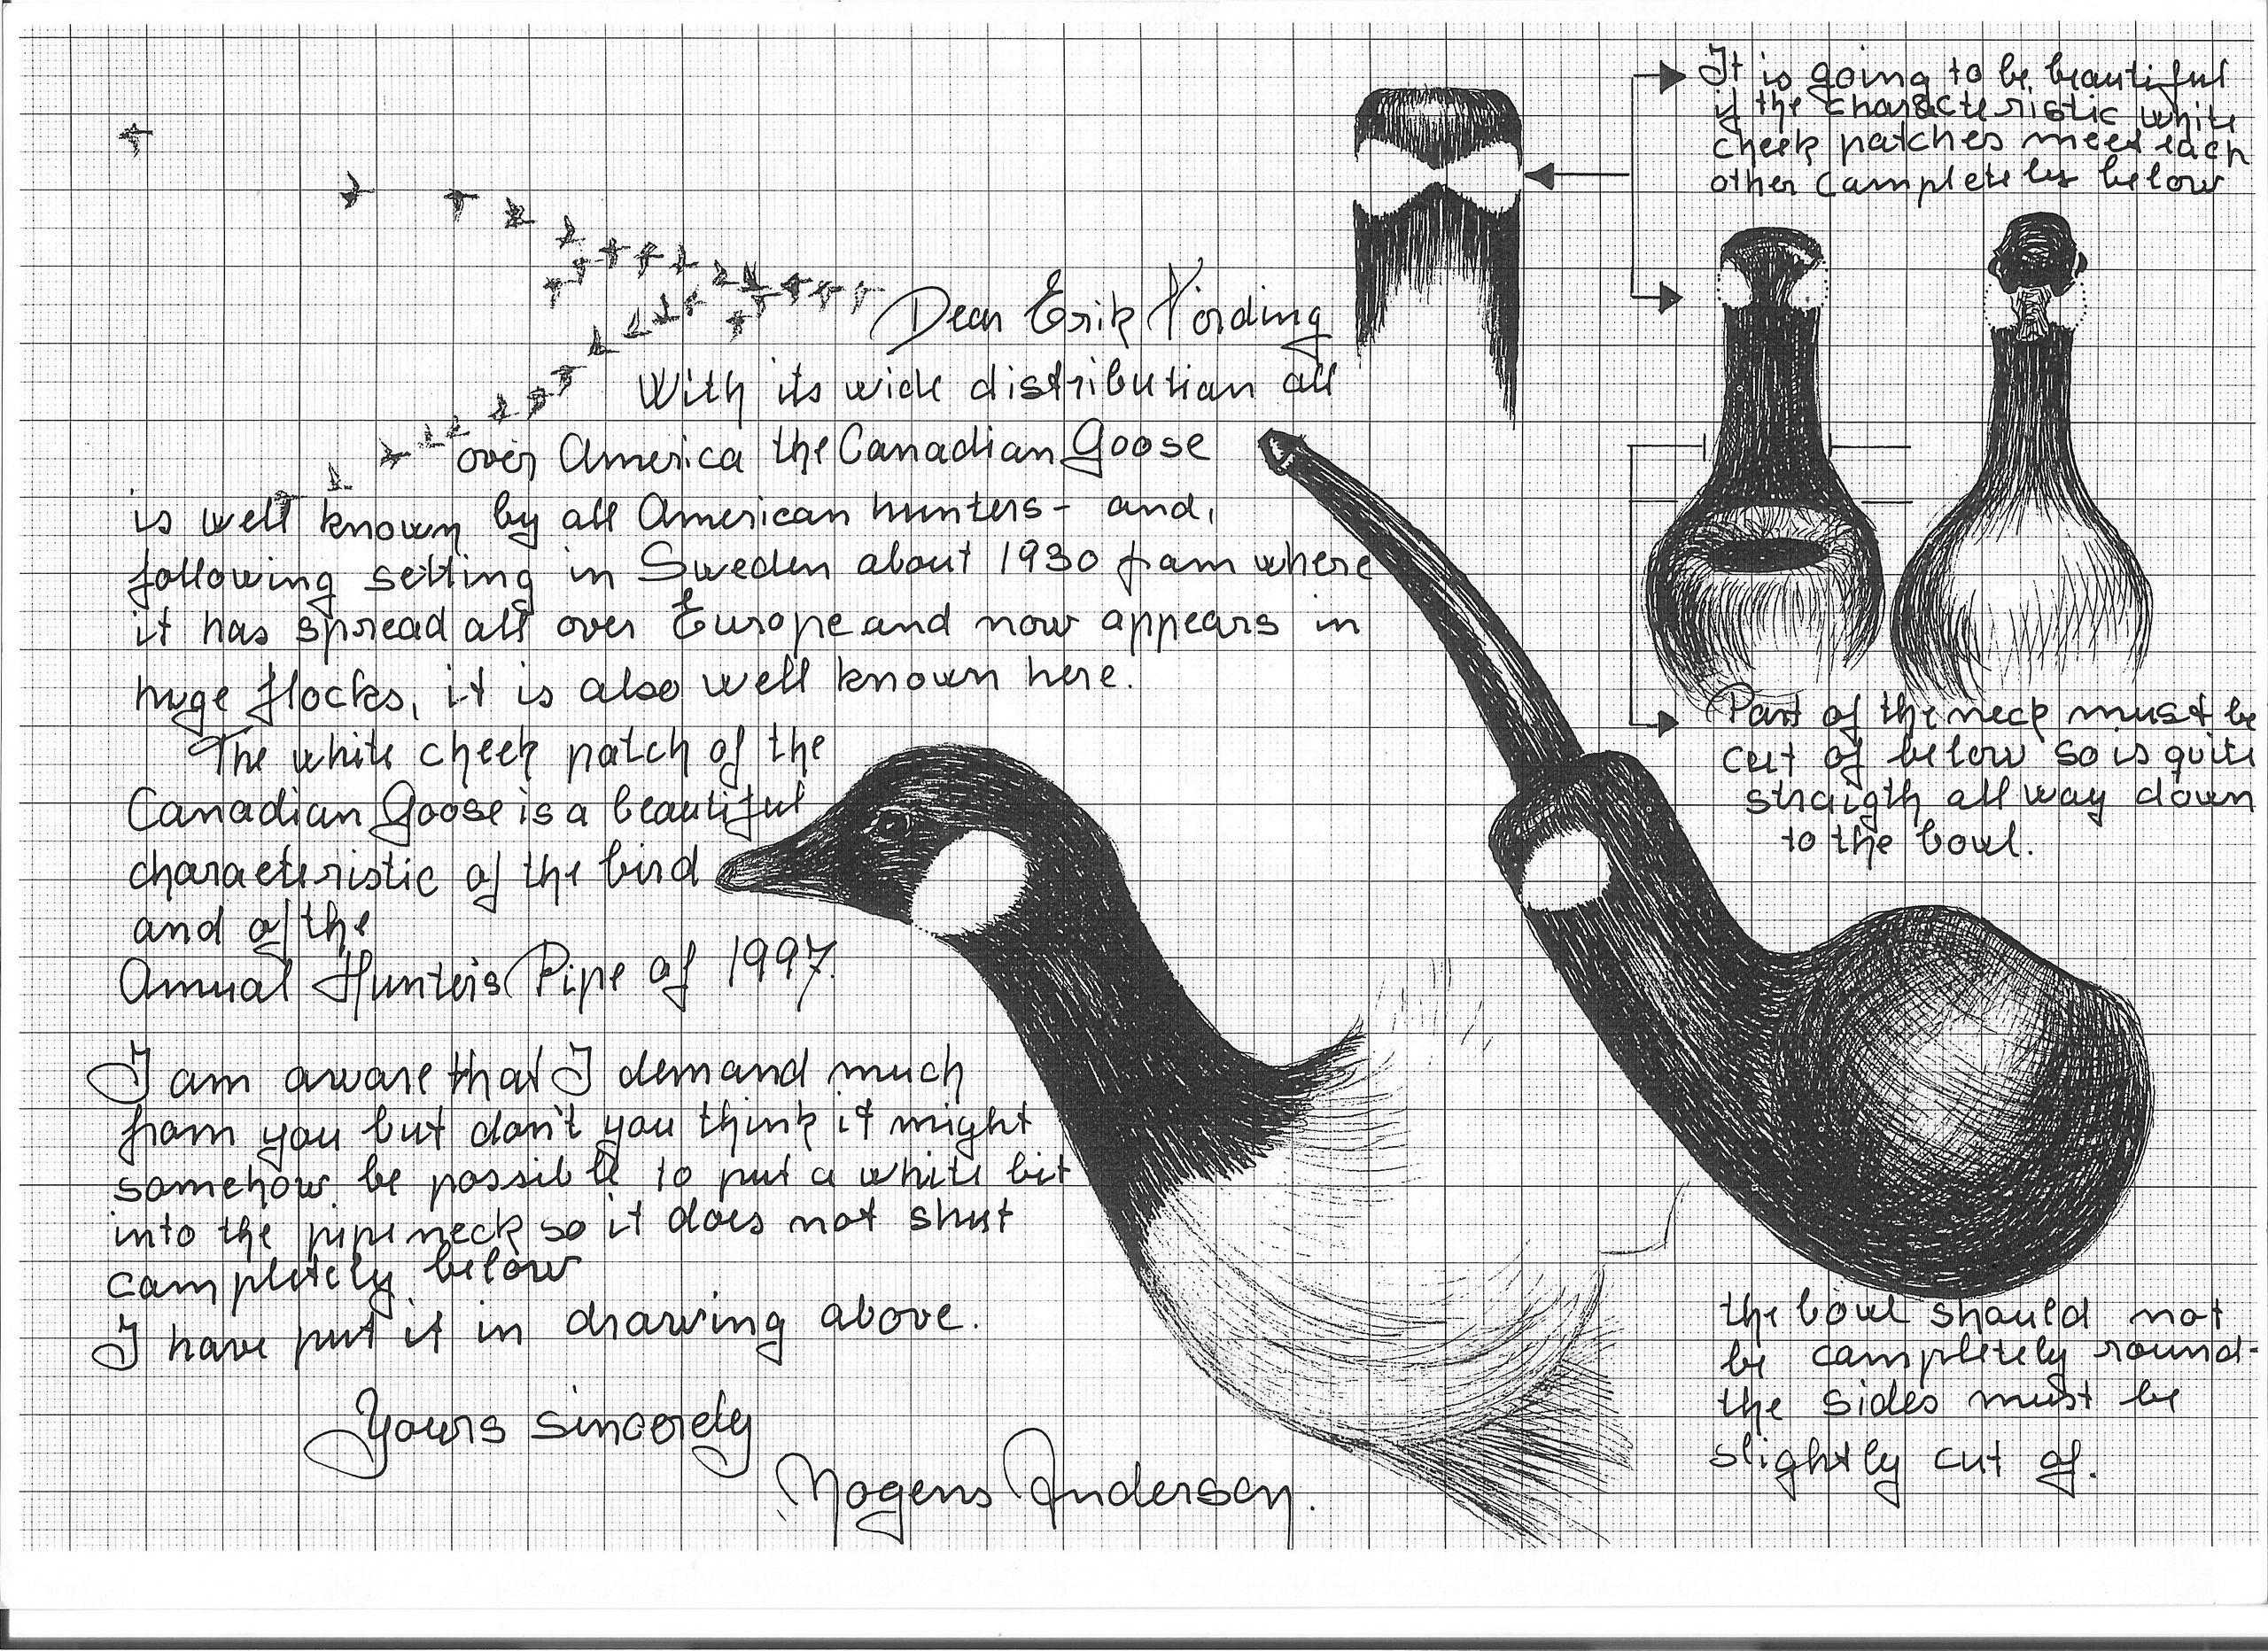 Dear Erik Nørding
With its wide distribution all
over America the Canadian Goose
is well known by all American hunters - and,
following setting in Sweden about 1930 from where
it has spread all over Europe and now appears in
huge flocks, it is also well known here.
The white cheek patch of the
Canadian Goose is a beautiful
characteristic of the bird
and of the
Annual Hunters Pipe of 1997.
I am aware that I demand much
from you but don't you think it might
somehow be possible to put a white bit
into the pipe neck so it does not shut
completely below
I have put it in drawing above.
Yours sincerely
Mogens Andersen.
It is going to be beautiful
if the characteristic white
cheek patches meet each
other completely below
Part of the neck must be
cut of below so is quite
straigth all way down
to the bowl.
the bowl should not
be completely round-
the sides must be
slightly cut of.